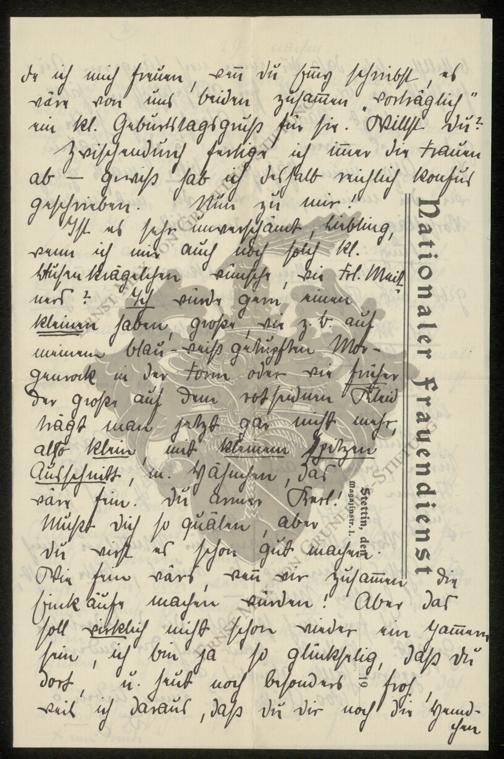 de ich mich freuen, wenn du schreibst, es
wäre von uns beiden zusammen "vorträglich"
ein kl. Geburtstagsgruß für sie. Willst du?
Zwischendurch fertige ich immer die Frauen
ab – gewiß hab ich deshalb reichlich konfus
geschrieben. Nun zu mir!
Ist es sehr unverschämt, Liebling,
wenn ich mir auch noch solch kl.
wünsche, wie Frl. Meiß-
ners? Ich würde gern einen
kleinen haben, große, wie z. B. auf
meinem blau-weiß getupften Mor-
genrock in der Form oder wie früher
der große auf dem rotseidnen Kleid
trägt man jetzt gar nicht mehr,
also klein mit kleinem Spitzen
Ausschnitt, m. Zähnchen, das
wäre fein. Du armer Kerl.
Mußt dich so quälen, aber
du wirst es schon gut machen.
Wie fein wärs, wenn wir zusammen die
Einkäufe machen würden! Aber das
soll wirklich nicht schon wieder ein Jammern
sein, ich bin ja so glückselig, daß du
dort, u. heut noch besonders froh,
weil ich daraus, daß du dir noch die Hemd-
chen
Nationaler Frauendienst
Stettin, den
Magazinstr. 1.
19